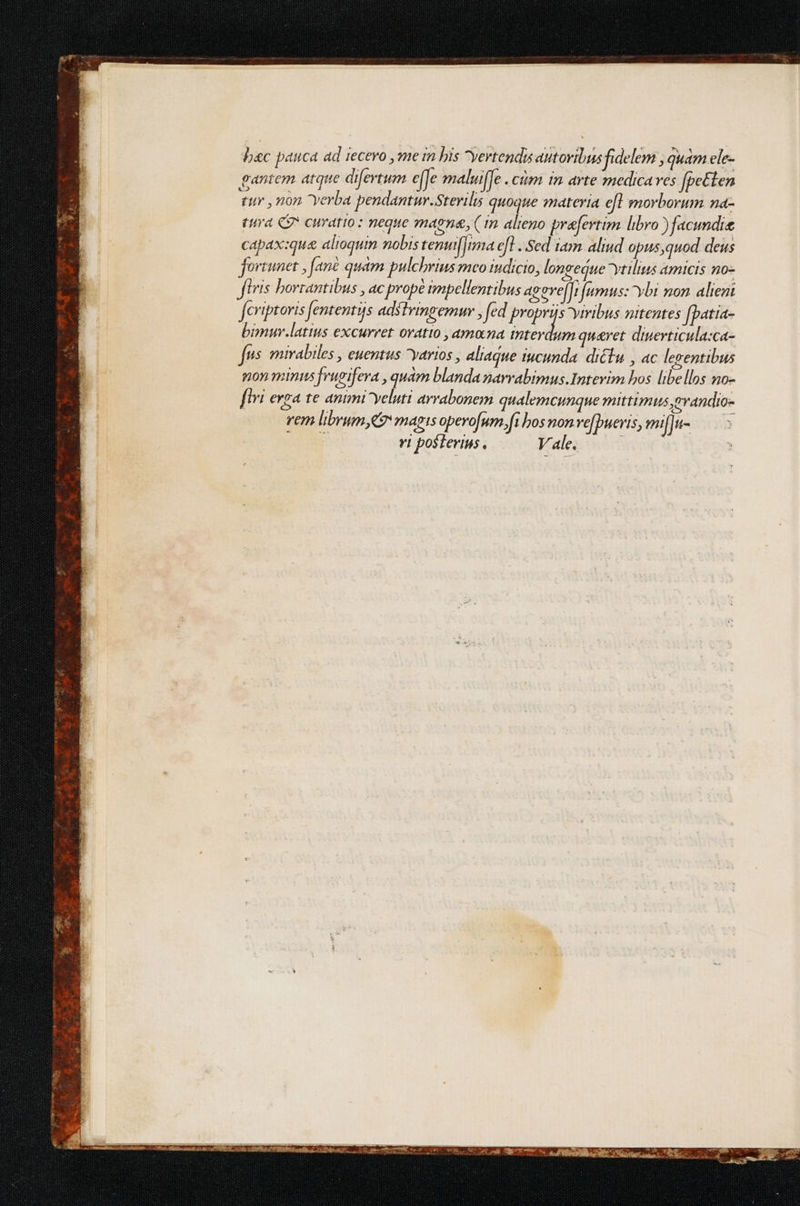 hæc pauca adiecero, me in his vertendis autoribus fidelem, quàm ele-
gantem atque disertum esse maluisse. cùm in arte medica res specten
tur, non verba pendantur. Sterilis quoque materia est morborum na-
tura & curatio: neque magnæ, (in alieno præsertim libro) facundiæ
capax: quæ alioquin nobis tenuissima est. Sed iam aliud opus, quod deus
fortunet, sanè quàm pulchrius meo iudicio, longeque vtilius amicis no-
stris hortantibus, ac propè impellentibus aggressi sumus: vbi non alieni
scriptoris sententijs adstringemur, sed proprijs viribus nitentes spatia-
bimur. latius excurret oratio, amœna interdum quæret diuerticula: ca-
sus mirabiles, euentus varios, aliaque iucunda dictu, ac legentibus
non minus frugifera, quàm blanda narrabimus. Interim hos libellos no-
stri erga te animi veluti arrabonem qualemcunque mittimus, grandio-
rem librum, & magis operosum, si hos non respueris, missu-
ri posterius. Vale.